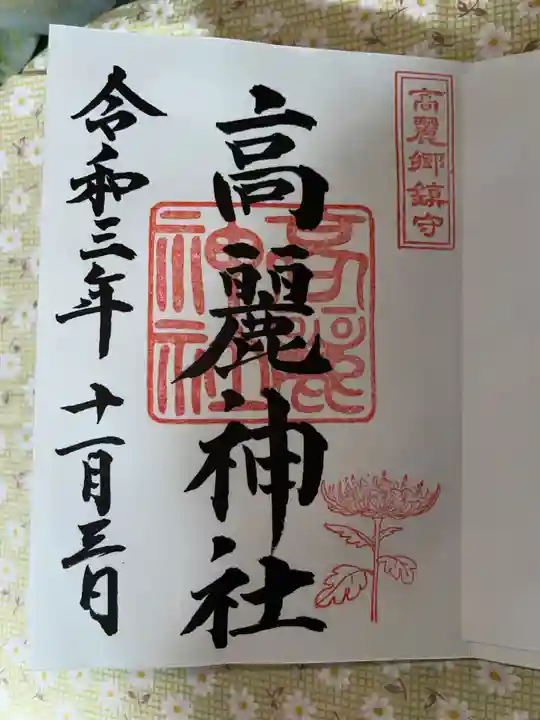 高麗郷鎮守
高麗神社
高麗神社
令和三年 十一月三日